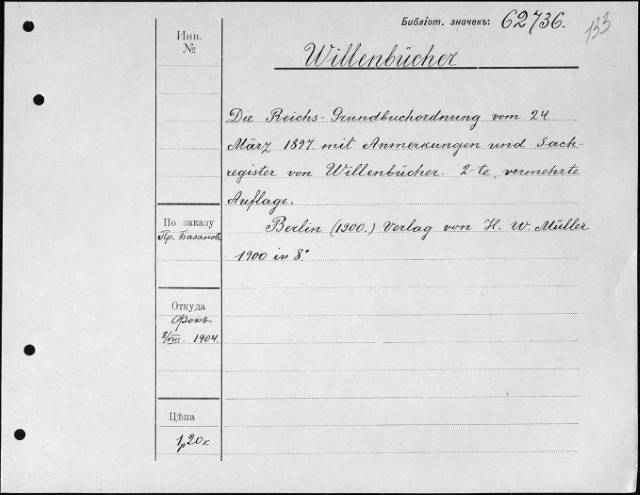 Библіот. значекъ: 62736.
133
Инв.
№
Willenbücher
Die Reichs-Grundbuchordnung vom 24
März 1897. mit Anmerkungen und Sach-
register von Willenbücher. 2-te, vermehrte
Auflage.
Berlin (1900.) Verlag von H. W. Müller
1900 in 8.°
По заказу
Пр. Базанова
Откуда
Фокъ
8/VIII. 1904.
Цѣна
1р 20к